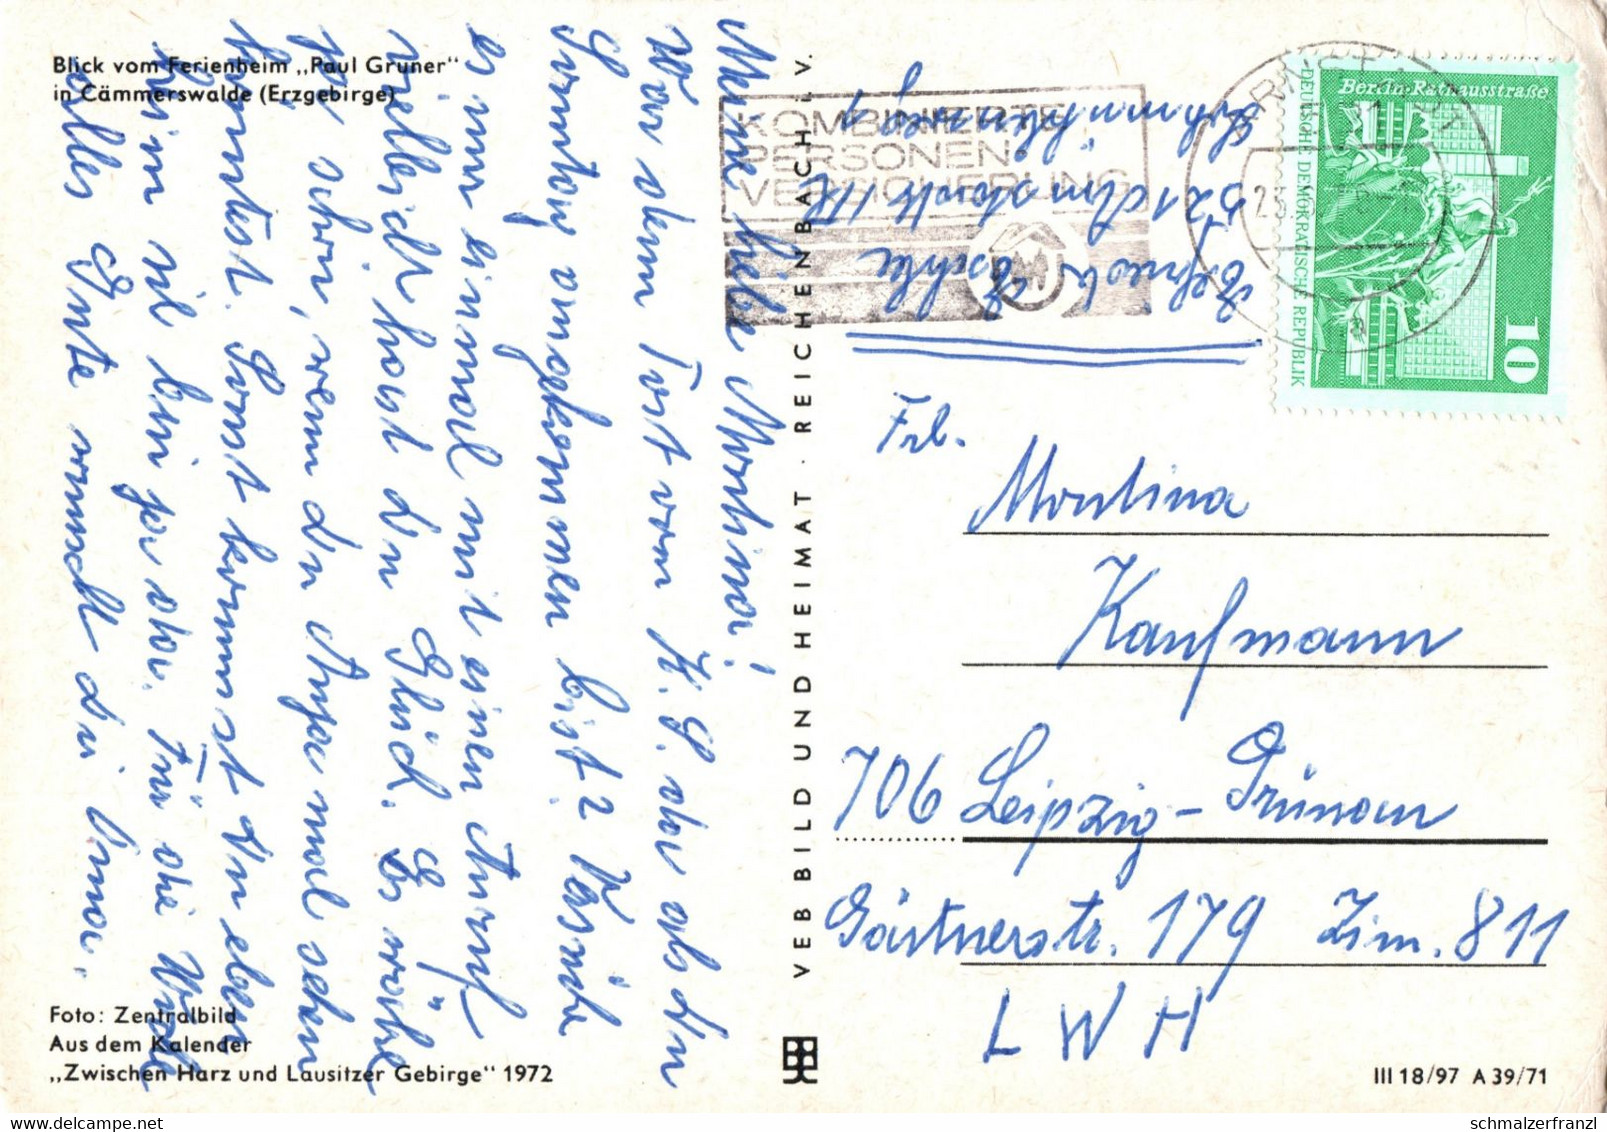 Blick vom Ferienheim „Paul Gruner“
in Cämmerswalde (Erzgebirge)
Meine liebe Martina!
War denn Post vom K. G. da als Du
Sonntag angekommen bist? Versuche
es nur einmal mit einen Anruf
vielleicht hast Du Glück. Es wäre
ja schön, wenn Du Anja mal sehen
könntest. Sonst kommst Du eben
heim ich bin ja da. Für die Woche
alles Gute wünscht Dir Oma.
Foto: Zentralbild
Aus dem Kalender
„Zwischen Harz und Lausitzer Gebirge“ 1972
VEB BILD UND HEIMAT · REICHENBACH I. V.
KOMBINIERTE
PERSONEN-
VERSICHERUNG
521 Arnstadt
Berlin-Rathausstraße
DEUTSCHE DEMOKRATISCHE REPUBLIK
10
Frl.
Martina
Kaufmann
706 Leipzig - Grünau
Gärtnerstr. 179 Zim. 811
LWH
III 18/97 A 39/71
schmalzerfranzl